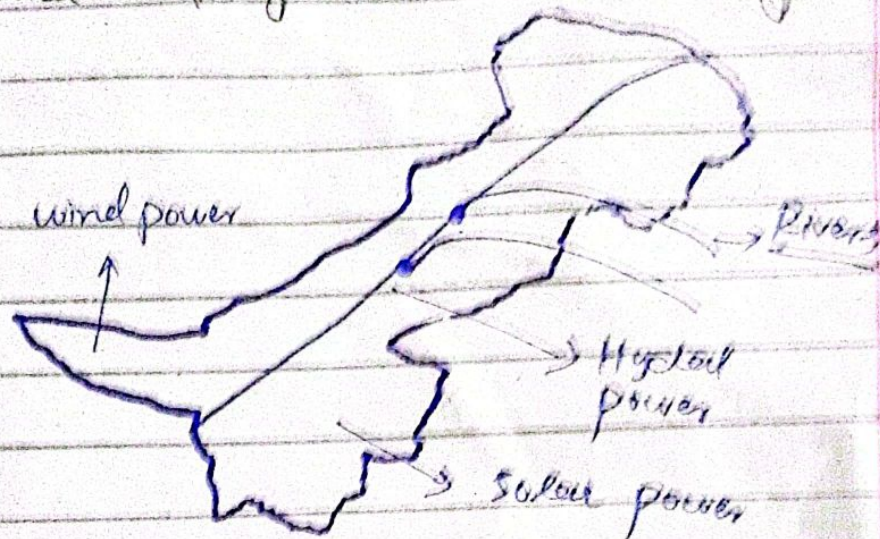 wind power
Rivers
Hydel
power
Solar power